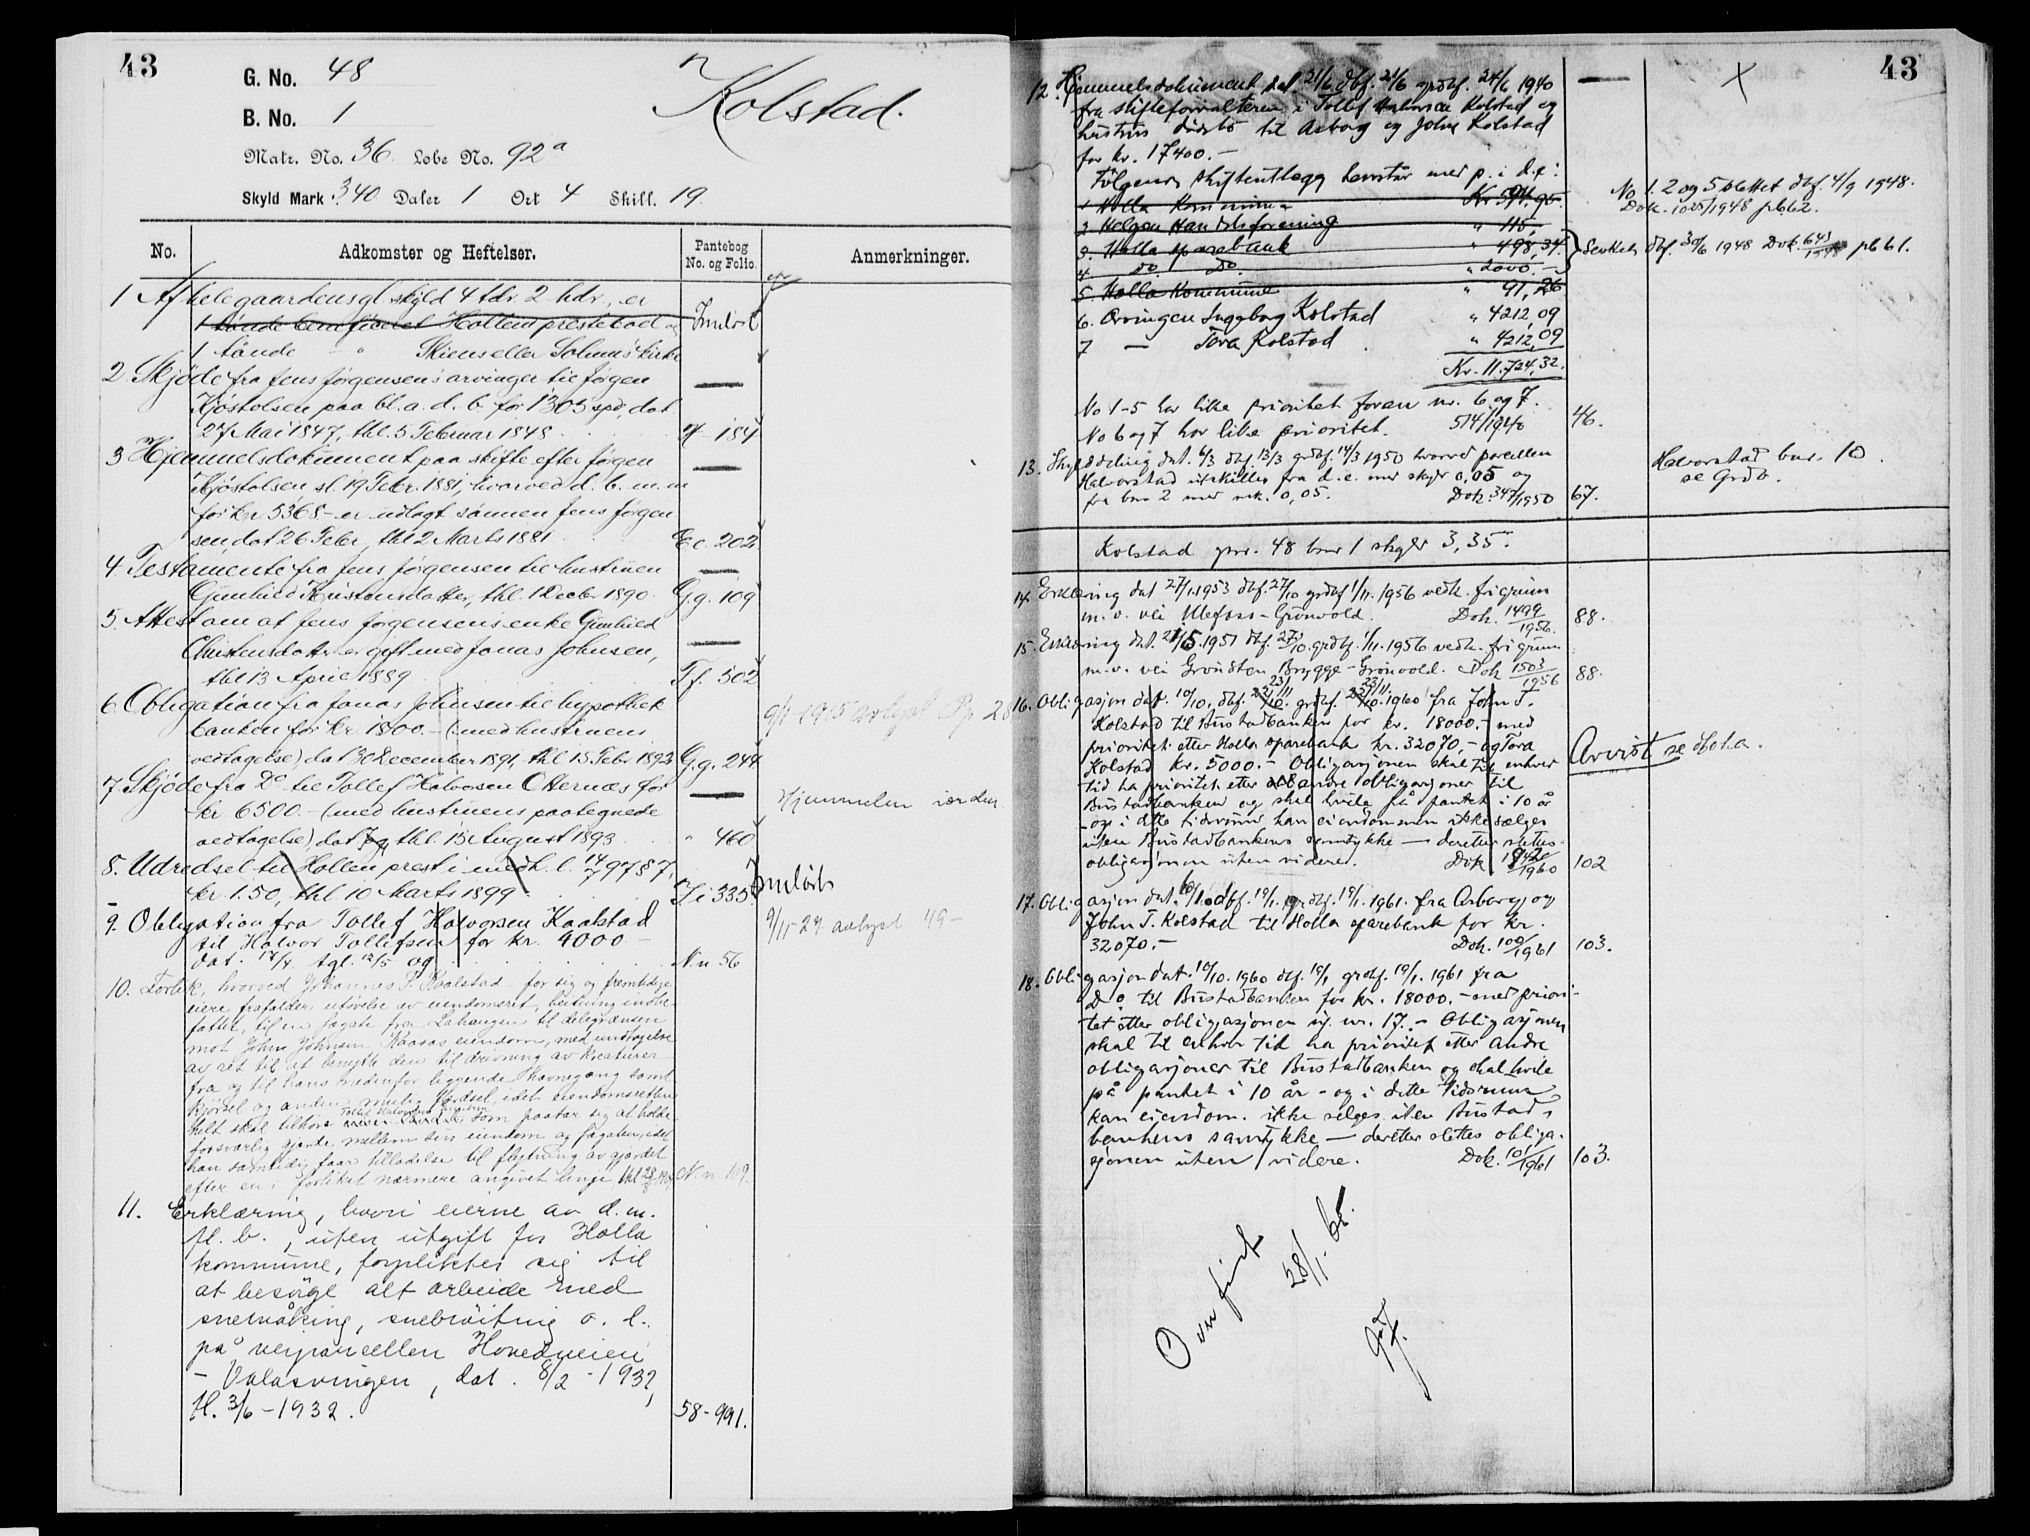 43
G. No. 48
B. No. 1
Kolstad.
Matr. No. 36. Løbe No. 92a
Skyld Mark 3.40 Daler 1 Ort 4 Skill. 19.
No. Adkomster og Heftelser. Pantebog No. og Folio. Anmerkninger.
1 Af hele gaardens gl. skyld 4 tdr. 2 hdr., er
1 tønde benificeret Hollen prestebod og Indløst
1 tønde " Skiens eller Solums kirke
2 Skjøde fra Jens Jørgensens arvinger til Jørgen
Kjøstolsen paa bl. a. d. b. for 1305 spd, dat
27 Mai 1847, thl. 5 Februar 1848. 184
3 Hjemmelsdokument paa skifte efter Jørgen
Kjøstolsen sl. 19 Febr. 1881, hvorved d. b. m. m
for kr 5368 - er udlagt sønnen Jens Jørgen
sen, dat 26 Febr., thl 2 Marts 1881 Ee. 202
4. Testamente fra Jens Jørgensen til hustruen
Gunhild Kristensdatter, thl. 1 Decbr 1890. G.g. 109
5. Attest om at Jens Jørgensens enke Gunhild
Christensdatter er gift med Jonas Johnsen,
thl 13 April 1889 F.f. 502
6. Obligation fra Jonas Johnsen til hypothek
banken for kr. 1800. - (med hustruens 9/1 1915 avlyst Pp 28
vedtagelse) dat 30 December 1891, thl 15 Febr 1892 G.g. 244
7. Skjøde fra Do til Tollef Halvorsen Otternæs for
kr 6500. - (med hustruens paategnede Hjemmelen i orden
vedtagelse), dat og thl. 15 August 1893 " 460
8. Udredsel til Hollen prest i medh. l. 14/7 97 § 7,
kr. 1.50, thl 10 Marts 1899. Ii 335 Indløst
9. Obligation fra Tollef Halvorsen Kaalstad 9/11-27 avlyst 49 -
til Halvor Tollefsen for kr. 4000 -
dat. 17/4 tgl. 12/5 09 Nn 56
10. Forlik, hvorved Johannes P. Kaalstad for sig og fremtidige
eiere frafalder utøvelse av eiendomsret, heitning indbe-
fattet, til en fægate fra Lahaugen til delegrænsen
mot John Johnsen Kaasas eiendom, med undtagelse
av ret til at benytte den til drivning av kreaturer
fra og til hans nedenfor liggende Havnegang samt
kjørsel og anden mulig færdsel, idet eiendomsretten
helt skal tilhøre Tollef Halvorsen Kaalstad som paatar sig at holde
forsvarlig gjærde mellem sin eiendom og fægaten, idet
han samtidig faar tilladelse til flytning av gjærdet
efter en i forliket nærmere angivet linje thl Nn 109.
11. Erklæring, hvori eierne av d. m.
fl. b., uten utgift for Holla
kommune, forplikter sig til
at besørge alt arbeide med
snemåking, snebrøiting o. l.
på veiparcellen Hovedveien
- Valasvingen, dat. 8/2 - 1932,
tl. 3/6 - 1932. 58 - 991.
43
12. Hjemmelsdokument dat 21/6 dbf. 21/6 grdbf. 24/6 1940 X
fra skifteforvalteren i Tollef Halvorsen Kolstad og
hustrus dødsbo til Asborg og John Kolstad
for kr. 17400. -
Følgende skifteutlegg hevstår med p. i d.e:
1 Holla Kommune Kr 594,95. No 1. 2 og 5 slettet dbf. 4/9 1948.
Dok. 1025/1948 pb62.
2 Helgen Handelsforening " 115,-
3. Holla sparebank " 498,34. Slettet dbf. 30/6 1948 Dok. 643/1948 pb 61.
4. do. do. " 2000. -
5. Holla Kommune " 91,26
6. Arvingen Ingeborg Kolstad " 4212,09
7 - Tora Kolstad " 4212,09
Kr. 11.724,32.
No 1-5 har like prioritet foran nr. 6 og 7.
No 6 og 7 har like prioritet. 514/1940 46.
13. Skylddeling dat. 6/3 dbf. 13/3 grdbf. 14/3 1950 hvorved parcellen Halvorstad bnr. 10.
Halvorstad utskilles fra d.e. med skyld 0,05 og se Grdb.
fra bnr 2 med mk. 0,05. Dok. 347/1950 67.
Kolstad gnr. 48 bnr 1 skyld 3,35.
14. Erklæring dat 27/1 1953 dbf. 27/10 grdbf 1/11. 1956 vedk. frigrunn
m.v. vei Ulefoss - Grønvold. Dok. 1499/1956. 88.
15. Erklæring dat. 21/5. 1951 dbf. 27/10. grdbf. 1/11. 1956 vedk. frigrunn
m.v. vei Grønsten Brygge - Grønvold. Dok 1503/1956 88.
16. Obligasjon dat. 10/10. dbf. 23/11 grdbf. 23/11. 1960 fra John T.
Kolstad til Bustadbanken for kr. 18000. - med
prioritet etter Holla sparebank kr. 32070, - og Tora Avvist se dbl.a.
Kolstad kr. 5000. - Obligasjonen skal til enhver
tid ha prioritet etter andre obligasjoner til
Bustadbanken og skal hvile på pantet i 10 år
- og i dette tidsrum kan eiendommen ikke sælges
uten Bustadbankens samtykke - deretter slettes
obligasjonen uten videre. Dok 1942/1960 102
17. Obligasjon dat. dbf. 19/1. grdbf. 19/1. 1961. fra Asborg og
John T. Kolstad til Holla sparebank for kr.
32070. - Dok. 100/1961 103.
18. Obligasjon dat. 10/10. 1960 dbf. 19/1 grdbf. 19/1. 1961 fra
Do. til Bustadbanken for kr. 18000. - med priori-
tet etter obligasjonen iflg. nr. 17. - Obligasjonen
skal til enhver tid ha prioritet etter andre
obligasjoner til Bustadbanken og skal hvile
på pantet i 10 år - og i dette tidsrum
kan eiendom. ikke selges uten Bustad-
bankens samtykke - deretter slettes obliga-
sjonen uten videre. Dok. 101/1961 103.
Overført
28/1. 65.